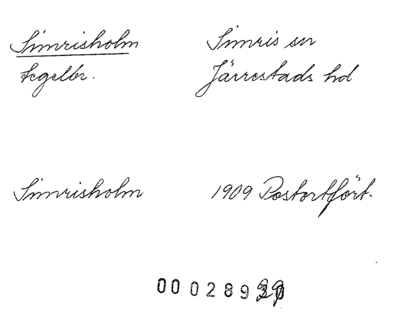 Simrisholm Simris sn
tegelbr. Järrestads hd
Simrisholm 1909 Postortfört.
000289